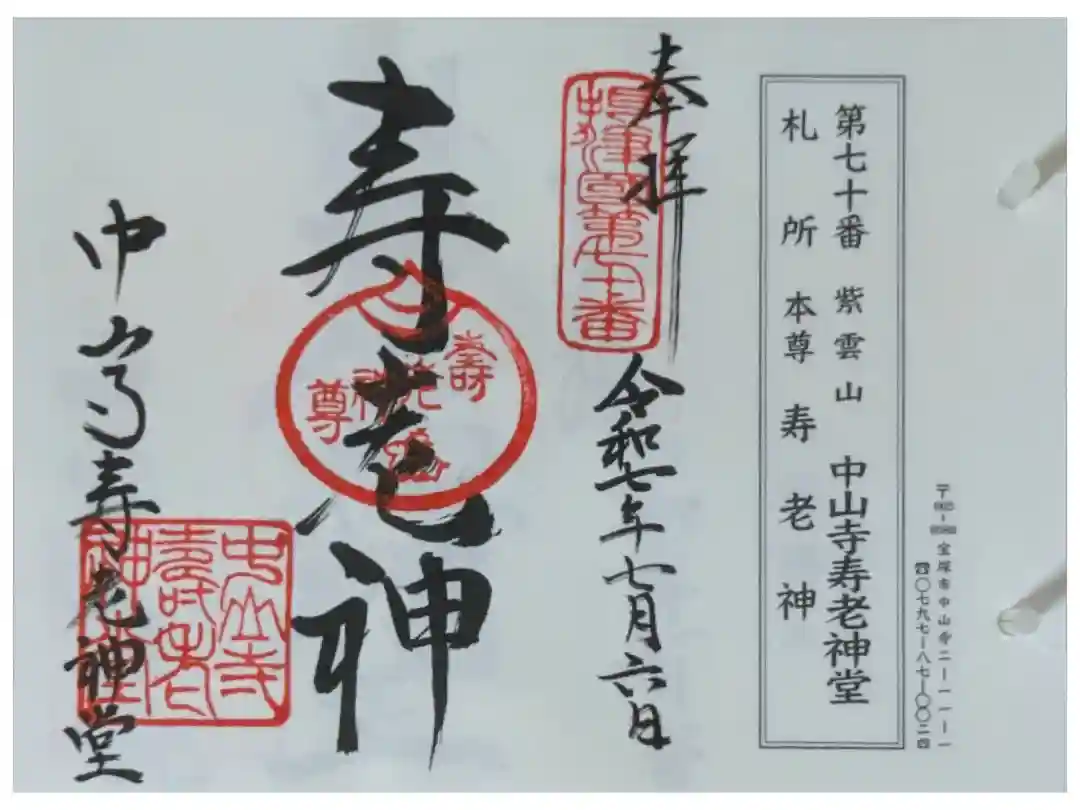 〒665-8588 宝塚市中山寺二ー一一ー一
☎〇七九七ー八七ー〇〇二四
第七十番 紫雲山 中山寺寿老神堂
札所本尊 寿老神
奉拝
令和七年七月六日
摂津國第七十番
寿老神
中山寺寿老神堂
中山寺
壽老
神堂